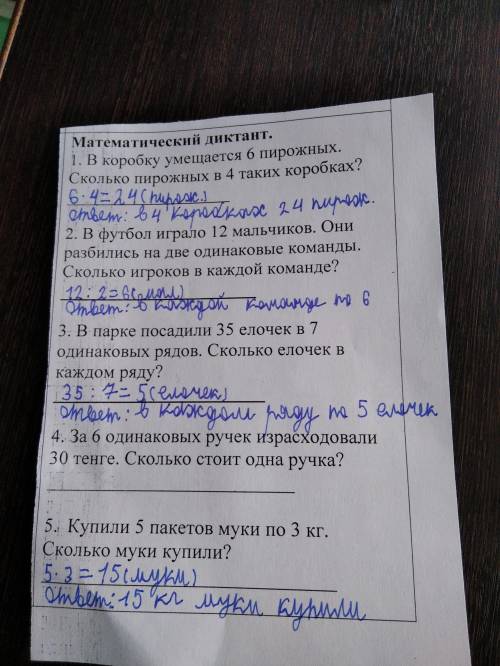 Математический диктант.
1. В коробку умещается 6 пирожных.
Сколько пирожных в 4 таких коробках?
6·4=24(пирож.)
Ответ: в 4 коробках 24 пирож.
2. В футбол играло 12 мальчиков. Они
разбились на две одинаковые команды.
Сколько игроков в каждой команде?
12:2=6(мал)
Ответ: в каждой команде по 6
3. В парке посадили 35 елочек в 7
одинаковых рядов. Сколько елочек в
каждом ряду?
35:7=5(елочек)
Ответ: в каждом ряду по 5 елочек
4. За 6 одинаковых ручек израсходовали
30 тенге. Сколько стоит одна ручка?
5. Купили 5 пакетов муки по 3 кг.
Сколько муки купили?
5·3=15(муки)
Ответ: 15 кг муки купили